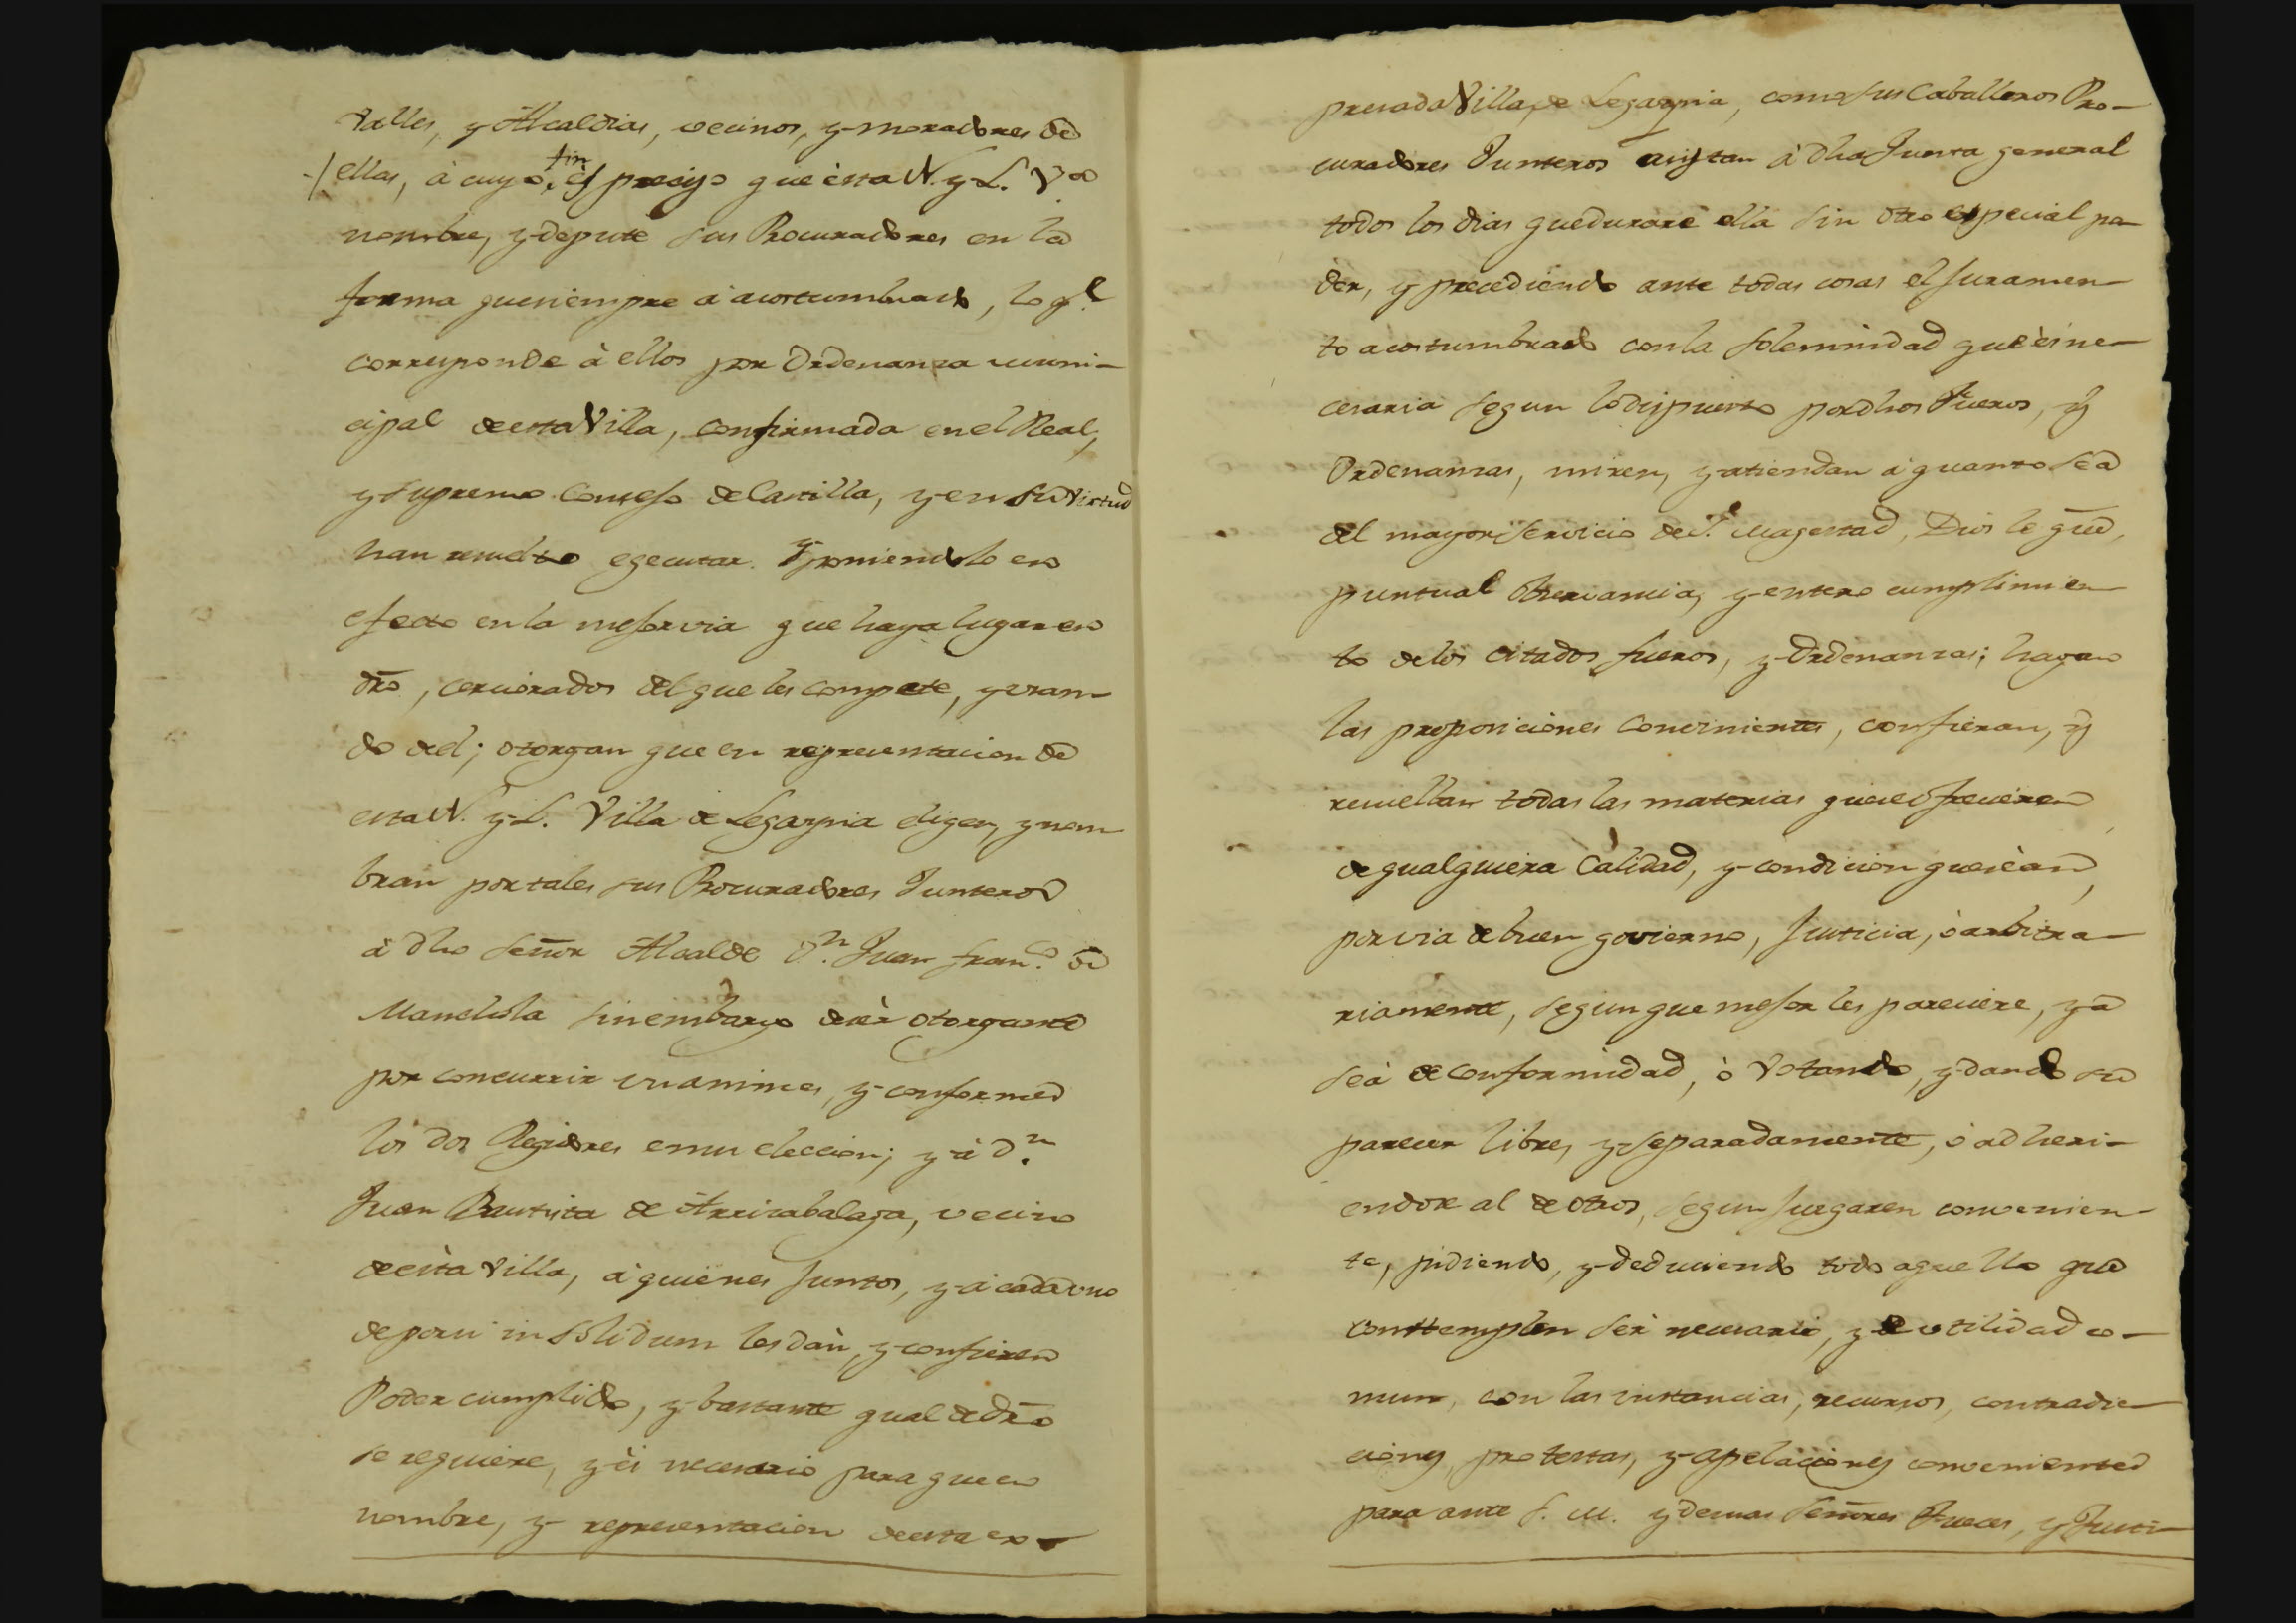 Valles, y Alcaldias, vecinos, y moradores de
ellas, à cuyo fin es preciso que èsta N. y L. Vª
nombre, y depute sus Procuradores en la
forma que siempre à acostumbrado, lo ql
corresponde à ellos por Ordenanza muni-
cipal de esta Villa, confirmada en el Real,
y Supremo Consejo de Castilla, y en su virtud
han resuelto egecutar. Y poniendolo en
efecto en la mejor via que haya lugar en
dro, cerciorados del que les compete, y usan-
do del; otorgan que en representacion de
esta N. y L. Villa de Legazpia eligen, y nom-
bran por tales sus Procuradores Junteros
à dho Señor Alcalde Dn. Juan Franco. de
Mandiola sin embargo de sèr otorgante
por concurrir unanimes, y conformes
los dos Regidores en su eleccion; y à Dn.
Juan Bautista de Arrizabalaga, vecino
de èsta Villa, à quienes juntos, y à cada uno
de por si in solidum les dàn, y confieren
Poder cumplido, y bastante qual de dro
se requiere, y ès necesario para que en
nombre, y representacion de esta ex-
presada Villa de Legazpia, como sus Caballeros Pro-
curadores Junteros asistan à dha Junta general
todos los dias que durare ella sin otro especial po-
der, y precediendo ante todas cosas el juramen-
to acostumbrado con la solemnidad que ès ne-
cesaria segun lo dispuesto por dhos Fueros, y
Ordenanzas, miren, y atiendan à quanto sea
del mayor servicio de S. Magestad, Dios le gue,
puntual observancia, y entero cumplimien-
to de los citados fueros, y Ordenanzas; hagan
las proposiciones convinientes, confieran, y
resuelban todas las materias que se ofrecieren
de qualquiera calidad, y condicion que sèan,
por via de buen govierno, Justicia, ò arbitra-
riamente, segun que mejor les pareciere, ya
sea de conformidad, ò votando, y dando su
parecer libre, y separadamente, ò adheri-
endose al de otros, segun juzgaren convenien-
te, pidiendo, y deduciendo todo aquello que
conttemplen sèr necesario, y de utilidad co-
mun, con las instancias, recursos, contradic-
ciones, protestas, y apelaciones convenientes
para ante S. M. y demas Señores Jueces, y Justi-